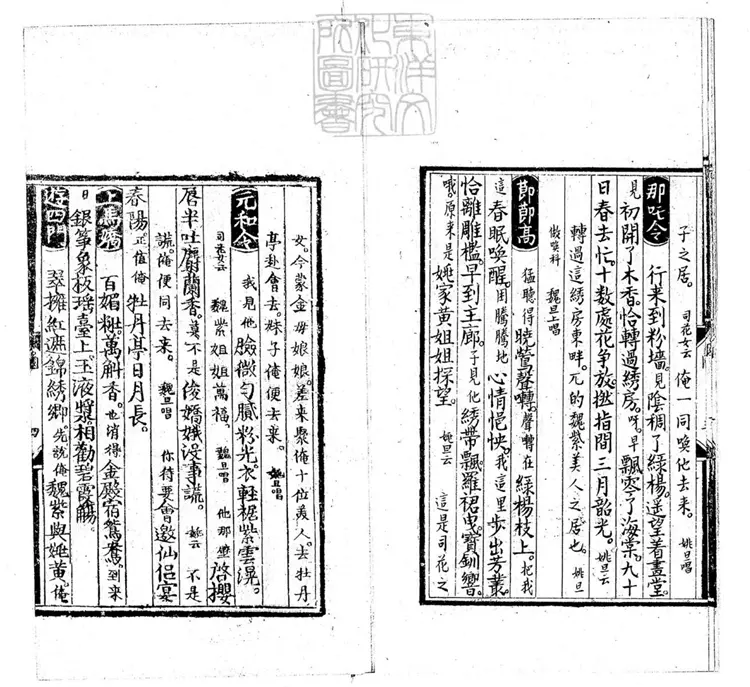 子之居。司花女云俺一同喚他去来。姚旦唱
那吒令行来到粉墻。見陰稠了綠楊。遥望着畫堂。
見初開了木香。恰轉過綉房。呀。早飄零了海棠。九十
日春去忙。十数處花争放。撚指間三月韶光。姚旦云
轉過這綉房東畔。兀的魏紫美人之居也。姚旦
做喚科魏旦上唱
節節高猛聽得曉鶯聲囀。聲囀在綠楊枝上。把我
這春眠喚醒。用騰騰地心情悒怏。我這里步出芳叢。
恰離雕檻。早到主廊。子見他綉帶飄。羅裙曳。寳釧響。
哦。原来是姚家黄姐姐探望。姚旦云這是司花之
女。今蒙金母娘娘。差来聚俺十位羙人。去牡丹
亭赴會去。妹子俺便去来。魏旦唱
元和令我見他臉微勻膩粉光。衣輕裾紫雲滉。
司花女云魏紫姐姐萬福。魏旦唱他那壁啓櫻
唇半吐麝蘭香。莫不是俊嬌娥没事謊。姚云不是
謊俺便同去来。魏旦唱你待要會邀仙侣宴
春陽正值俺牡丹亭日月長。
上馬嬌百媚粧。萬斛香。也消得金殿宿鴛鴦。到来
日銀筝象板瑶臺上。玉液漿。相勸碧霞觴。
遊四門翠擁紅遮錦綉鄉。先說俺魏紫與姚黄。俺
四